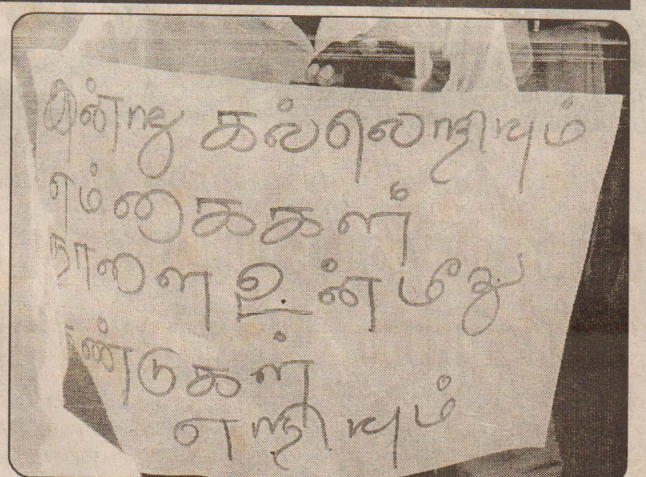 இன்று கல்லெறியும்
எம் கைகள்
நாளை உன் மீது
குண்டுகள்
எறியும்